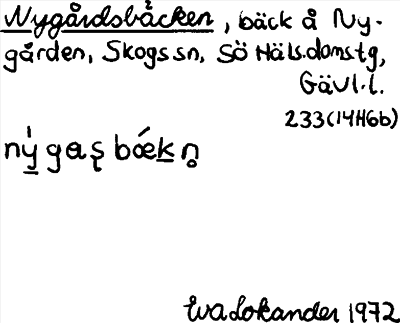 Nygårdsbäcken, bäck å Ny-
gården, Skogs sn, Sö Häls. domstg,
Gävl. l.
233(14H6b)
ný̲gaʂbǿek̲n̥
Eva Lokander 1972